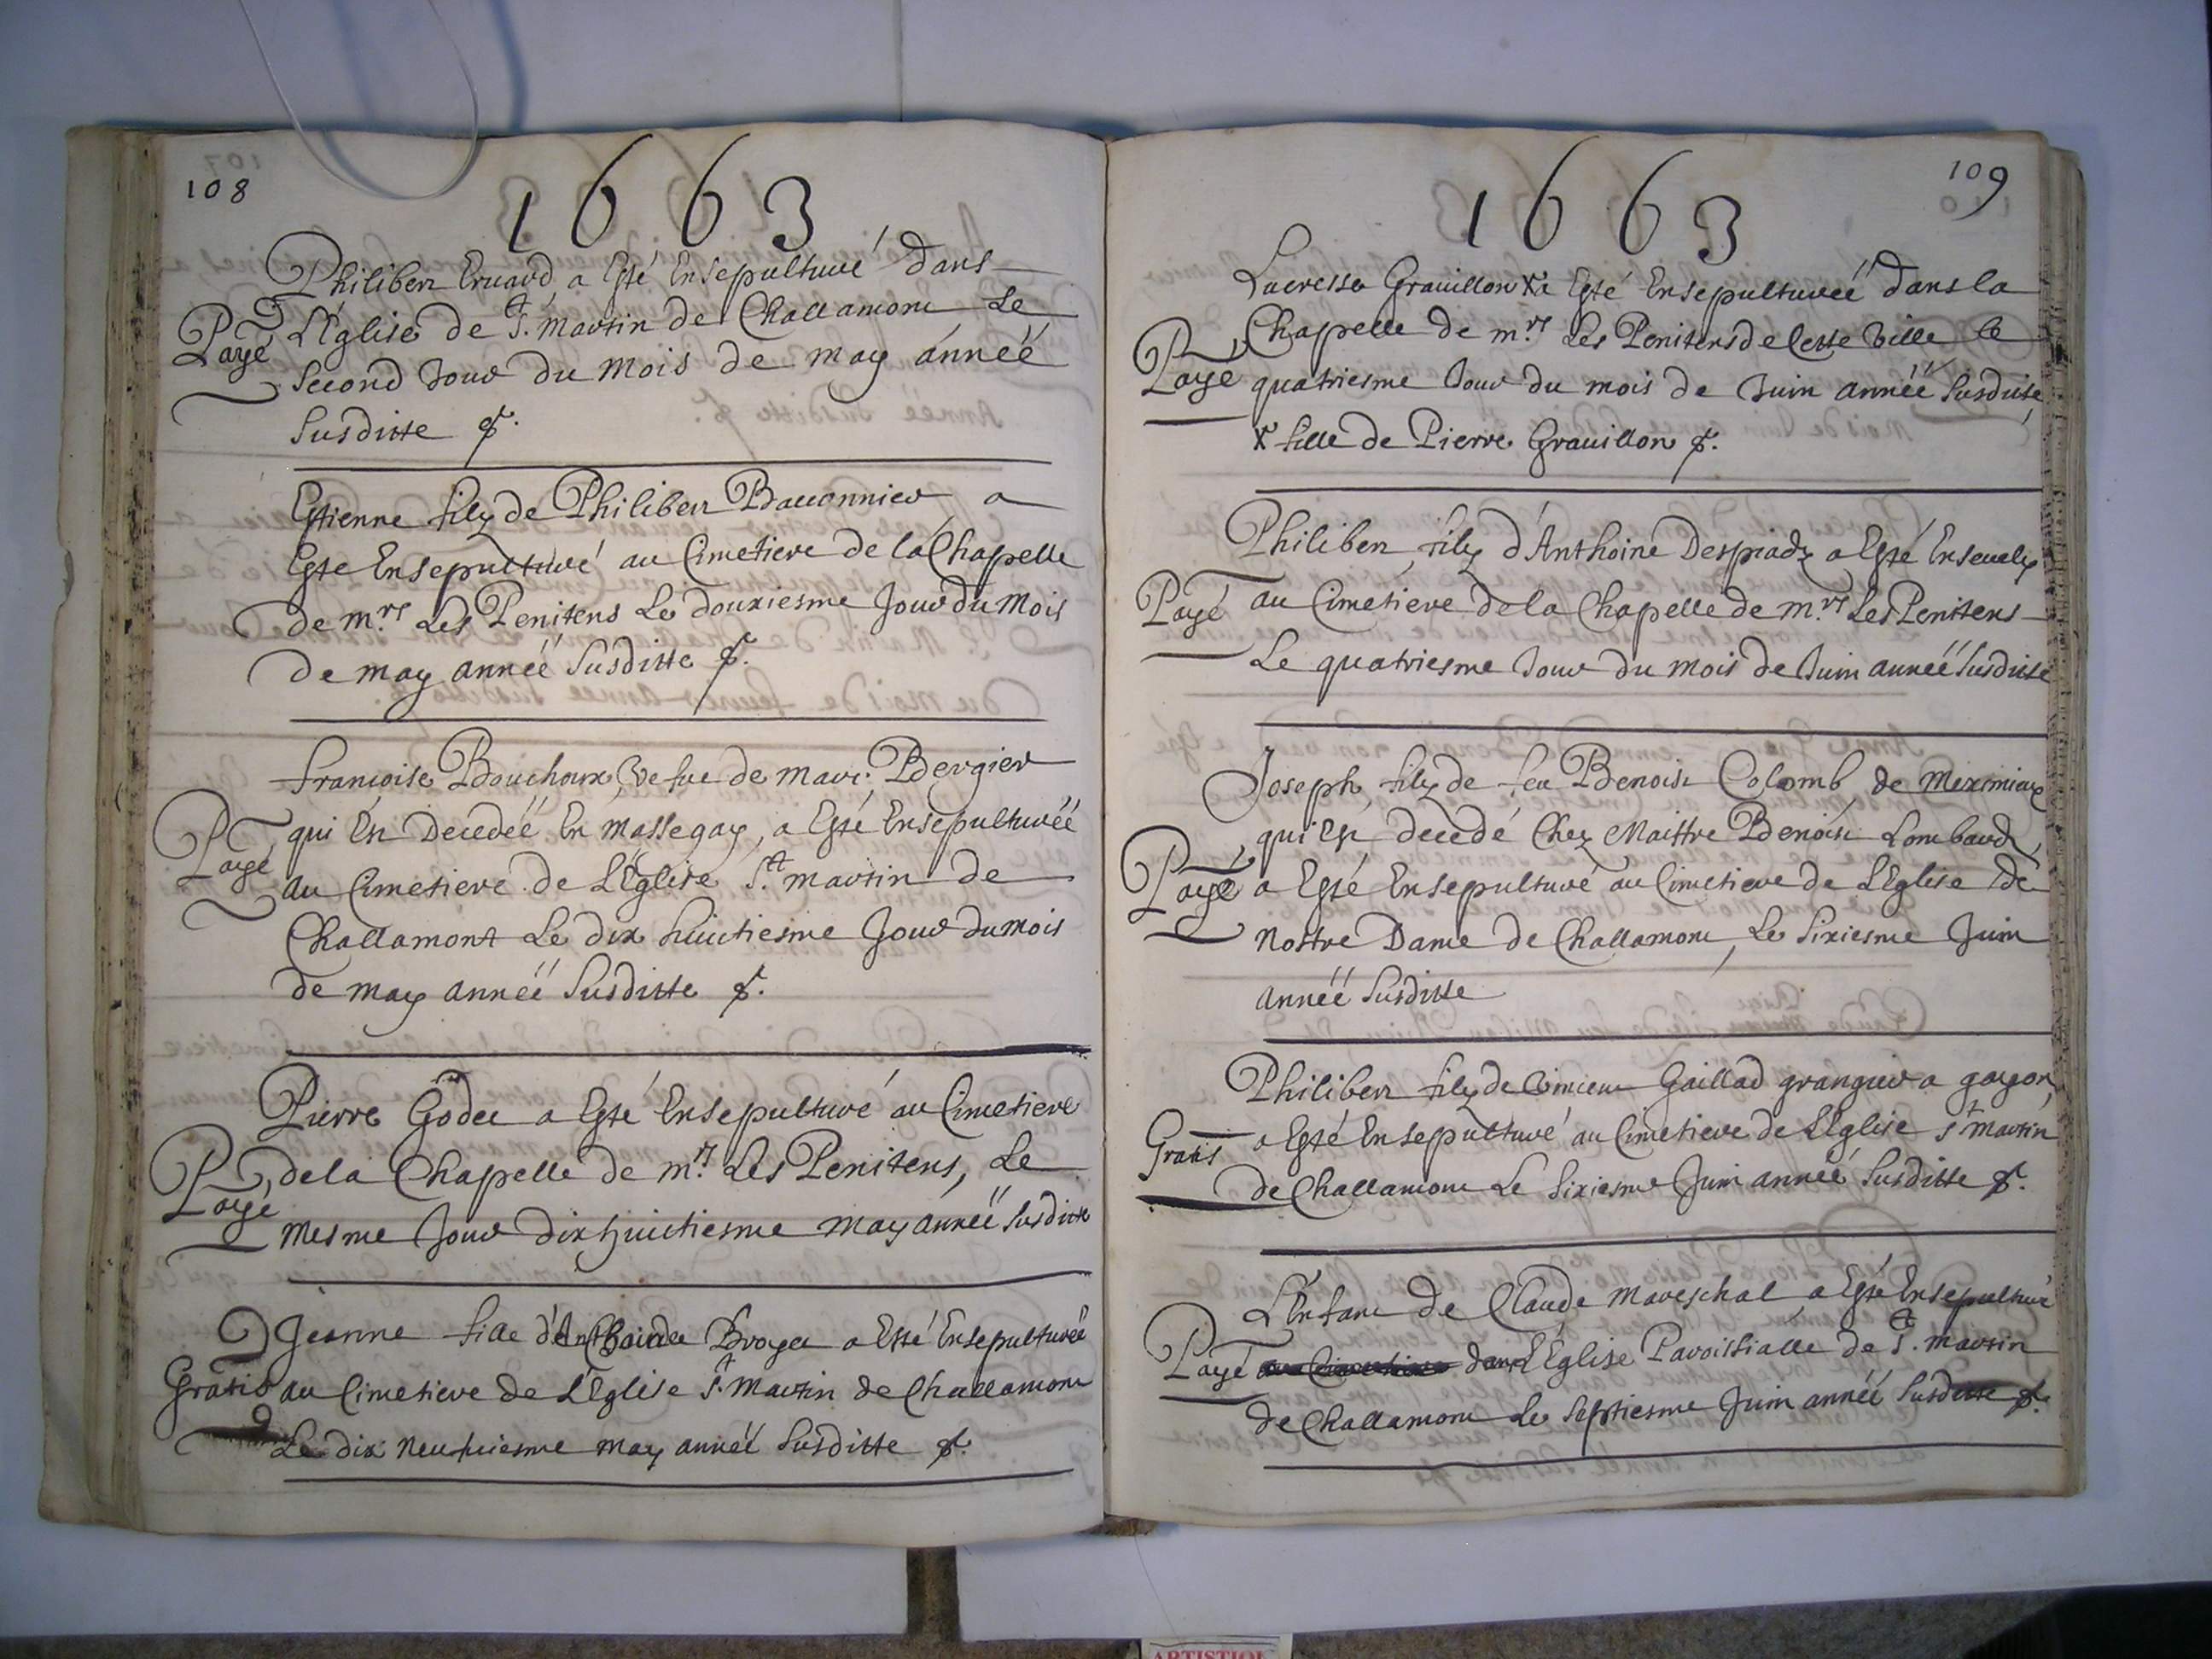 108
1663
Philibert Eruard a Esté Ensepulturé dans
Payé
L'Église de St. Martin de Challamont Le
Second Jour du Mois de may annéë
Susditte &.
Estienne fily de Philibert Bacconnier a
Este Ensepulturé au Cimetiere de la Chapelle
de mrs. Les Penitens Le douxiesme Jour du Mois
de may annéë Susditte &.
francoise Bouchoux, Vefue de marc. Bergier
qui Est Decedéë En Massegay, a Esté Ensepulturéë
Payé
au Cimetiere de L'Église St. martin de
Challamont Le dix huictiesme Jour du mois
de may annéë Susditte &.
Pierre Godet a Esté Ensepulturé au Cimetiere
Payé
de la Chapelle de mrs. Les Penitens, Le
Mesme Jour dix huictiesme may annéë Susditte
Jeanne fille Broyer a Esté Ensepulturéë
Gratis
au Cimetiere de L'Eglise St. Martin de Challamont
Le dix neufuiesme may annéë Susditte &.
109
1663
Lucresse Grauillon x a Esté Ensepulturéë dans la
Chapelle de mrs. Les Penitens de Cette Ville le
Payé
quatriesme Jour du mois de Juin annéë Susditte
x fille de Pierre Grauillon &.
Philibert fily d'Anthoine Despiadz a Esté Enseuely
Payé
au Cimetiere de la Chapelle de mrs. Les Penitens
Le quatriesme Jour du mois de Juin annéë Susditte
Joseph, fily de feu Benoist Colomb de Meximieux
qui Est decedé Chez Maittre Benoist Lombard,
Payé
a Esté Ensepulturé au Cimetiere de L'Eglise de
Nostre Dame de Challamont, Le Sixiesme Juin
annéë Susditte
Philibert fily de Gaillad grangier a gayon,
Gratis
a Esté Ensepulturé au Cimetiere de L'Église St martin
de Challamont Le Sixiesme Juin annéë Susditte &.
L'Enfant de Claude Mareschal a Esté Ensepulturé
Payé
dans L'Église Paroissialle de St. martin
de Challamont Le Septiesme Juin annéë Susditte &.